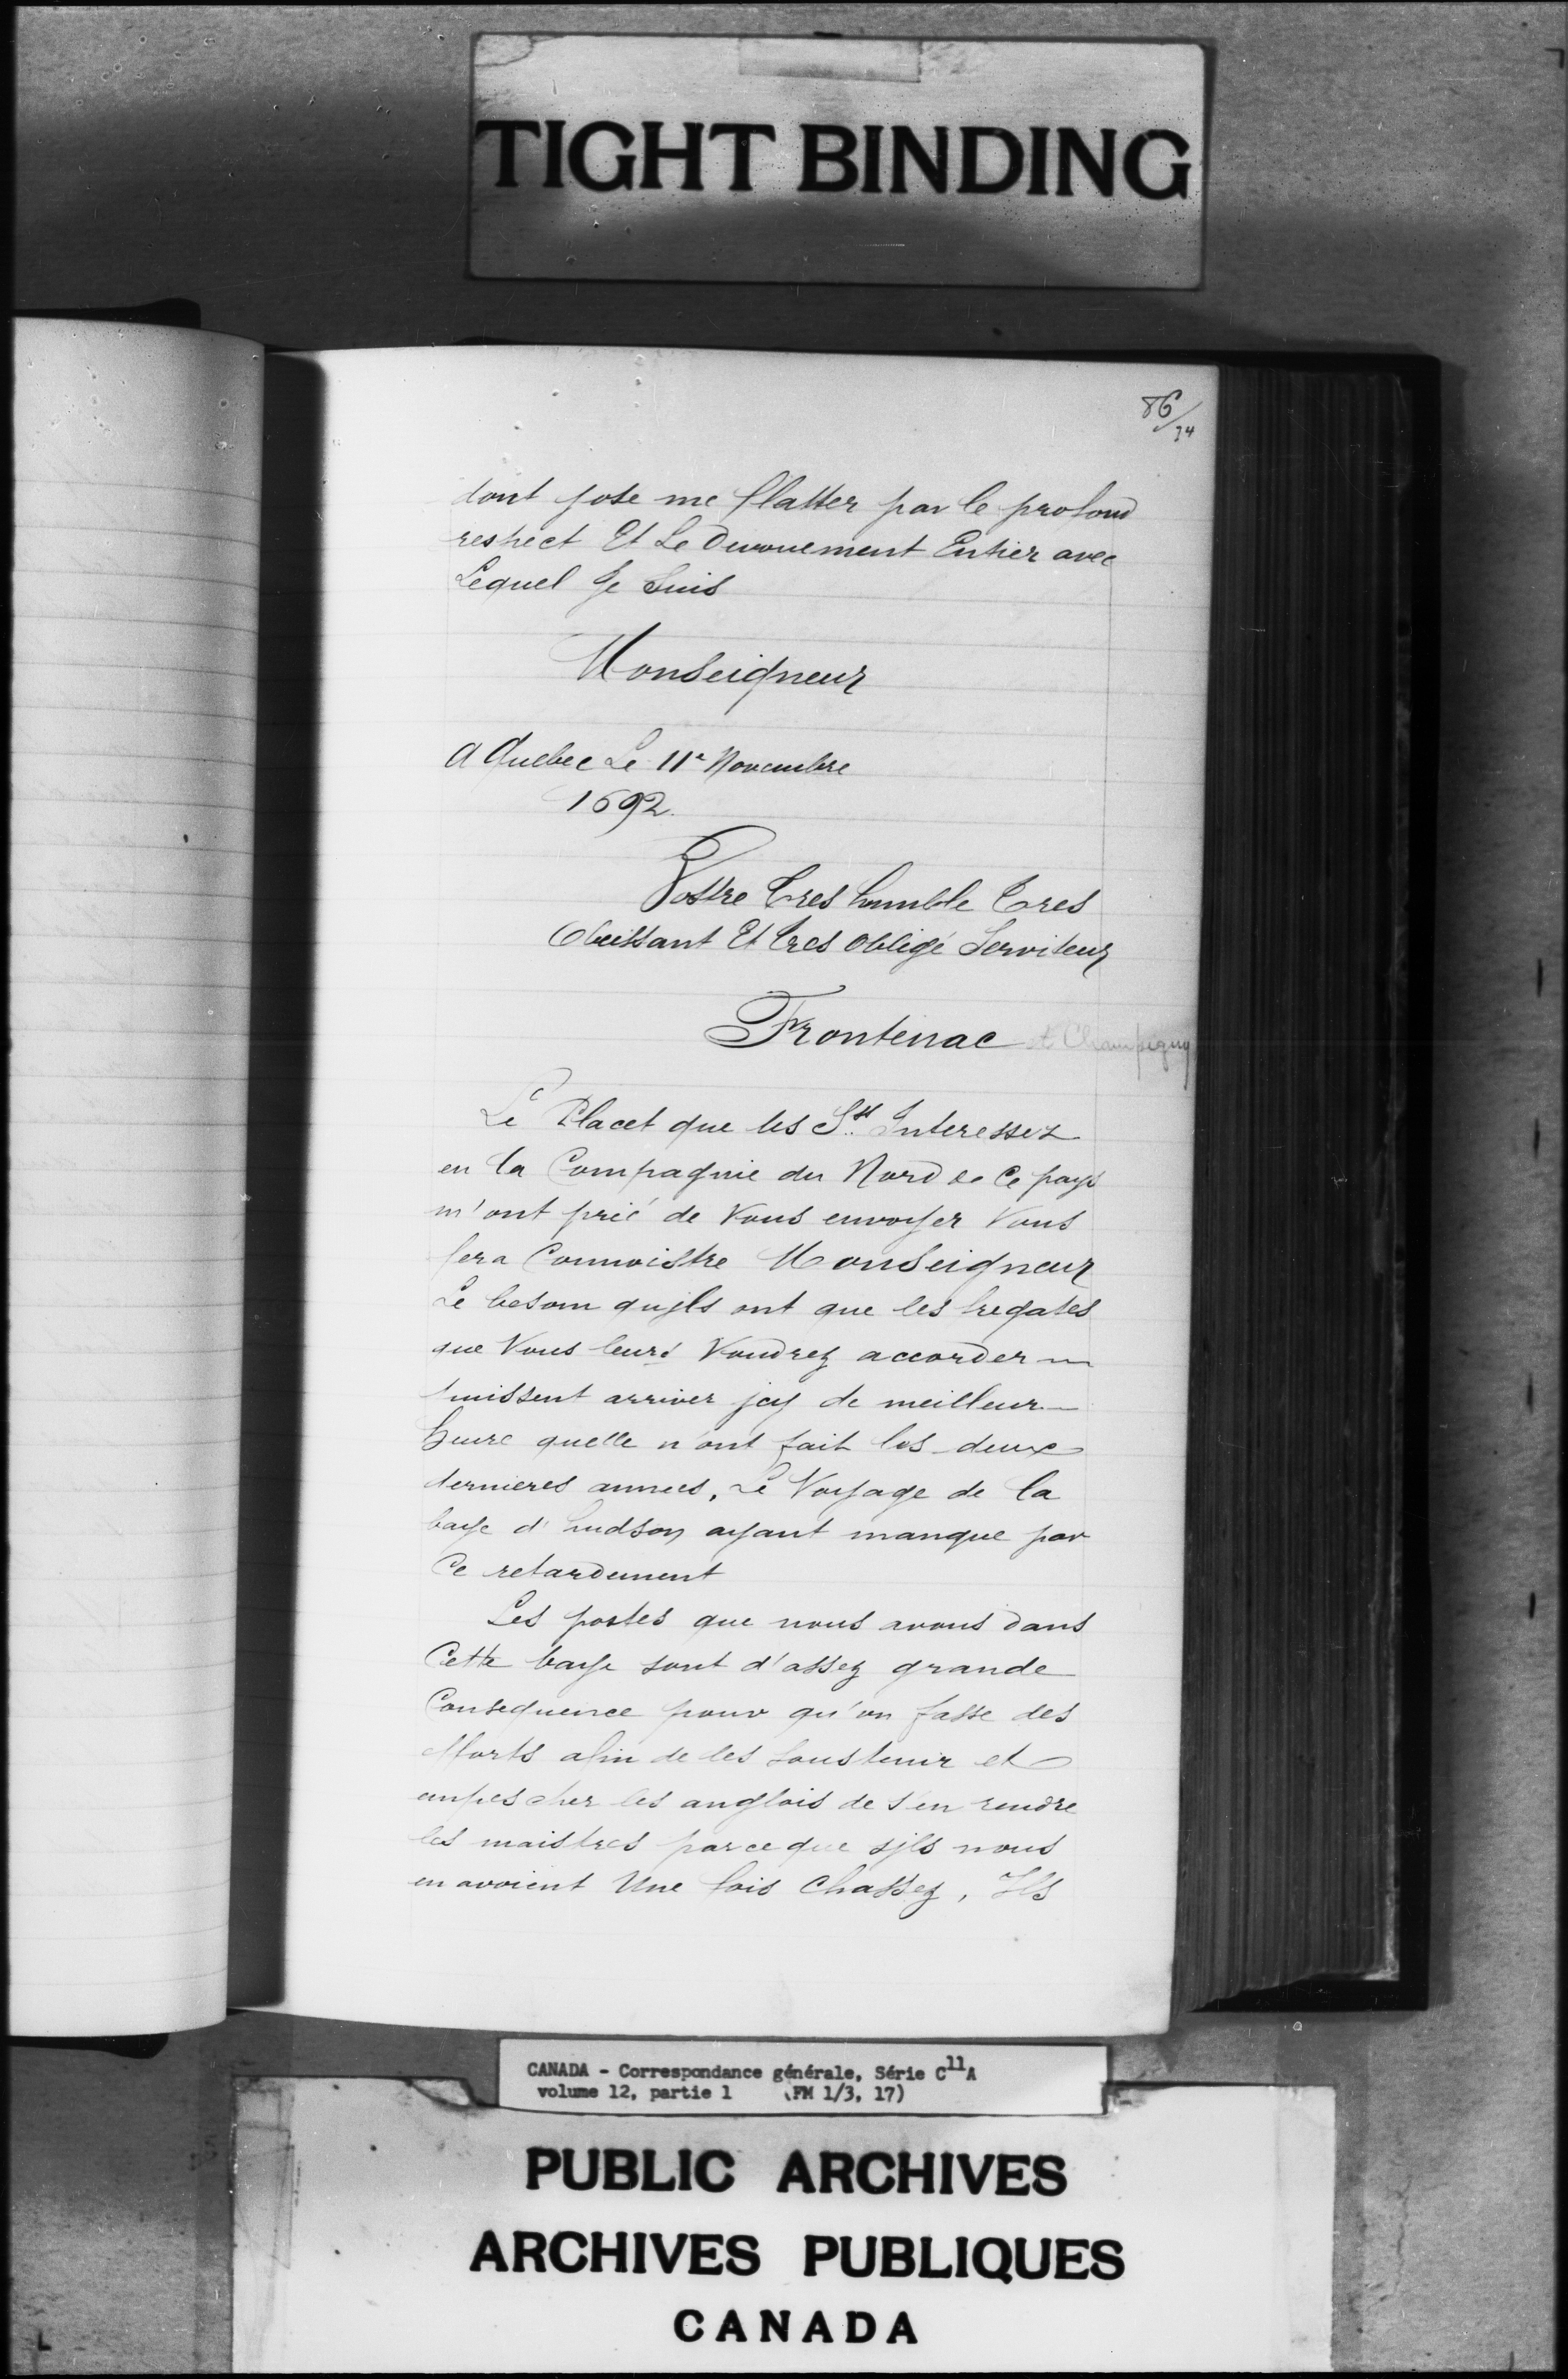 TIGHT BINDING
86/74
dont jose me flatter par le profond
respect Et Le Devouement Entier avec
Lequel Je Suis
Monseigneur
A Quebec Le 11e Novembre
1692.
Vostre tres humble tres
Obeissant Et tres obligé Serviteur
Frontenac et Champigny
Le Placet que les Srs Interessez
en la Compagnie du Nord de Ce pays
m'ont prié de Vous envoyer Vous
fera Connoistre Monseigneur
Le besoin qujls ont que les fregates
que Vous leurs Voudrez accorder
puissent arriver jcy de meilleur
heure quelle n'ont fait les deux
dernieres années, Le Voyage de la
baye d'hudson ayant manque par
Ce retardement
Les postes que nous avons dans
Cette baye sont d'assez grande
Consequence pour qu'on fasse des
efforts afin de les soustenir et
empescher les anglois de s'en rendre
les maistres parceque sjls nous
en avoient Une fois Chassez, Ils
CANADA - Correspondance générale, Série C11A
volume 12, partie 1 (FM 1/3, 17)
PUBLIC ARCHIVES
ARCHIVES PUBLIQUES
CANADA